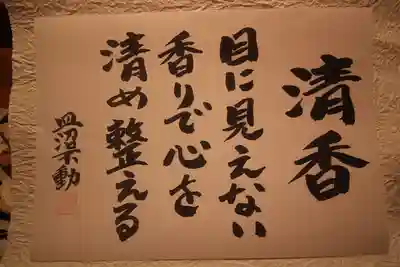 清香
目に見えない
香りで心を
清め整える
皿梁動